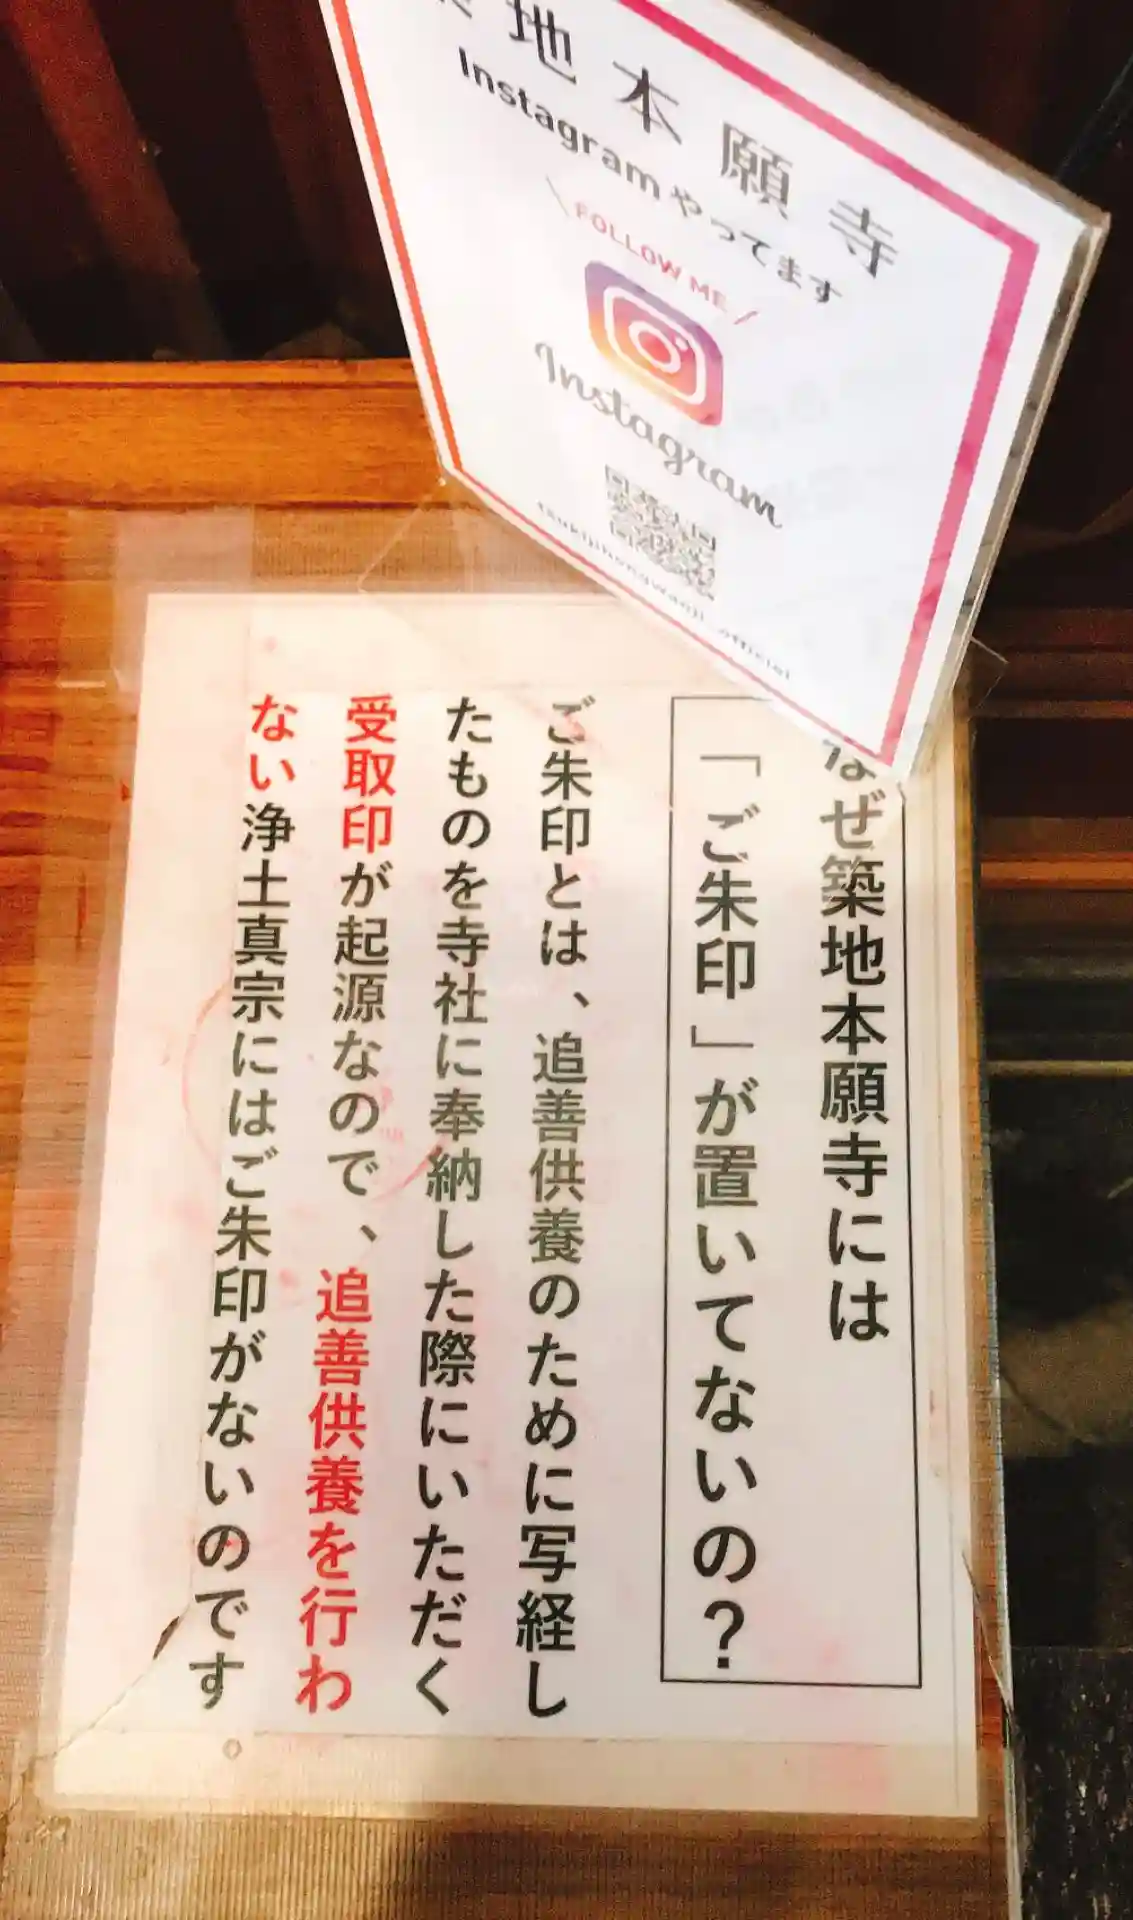 地本願寺
Instagramやってます
FOLLOW ME
Instagram
tsukijihongwanji_official
なぜ築地本願寺には
「ご朱印」が置いてないの？
ご朱印とは、追善供養のために写経し
たものを寺社に奉納した際にいただく
受取印が起源なので、追善供養を行わ
ない浄土真宗にはご朱印がないのです
。